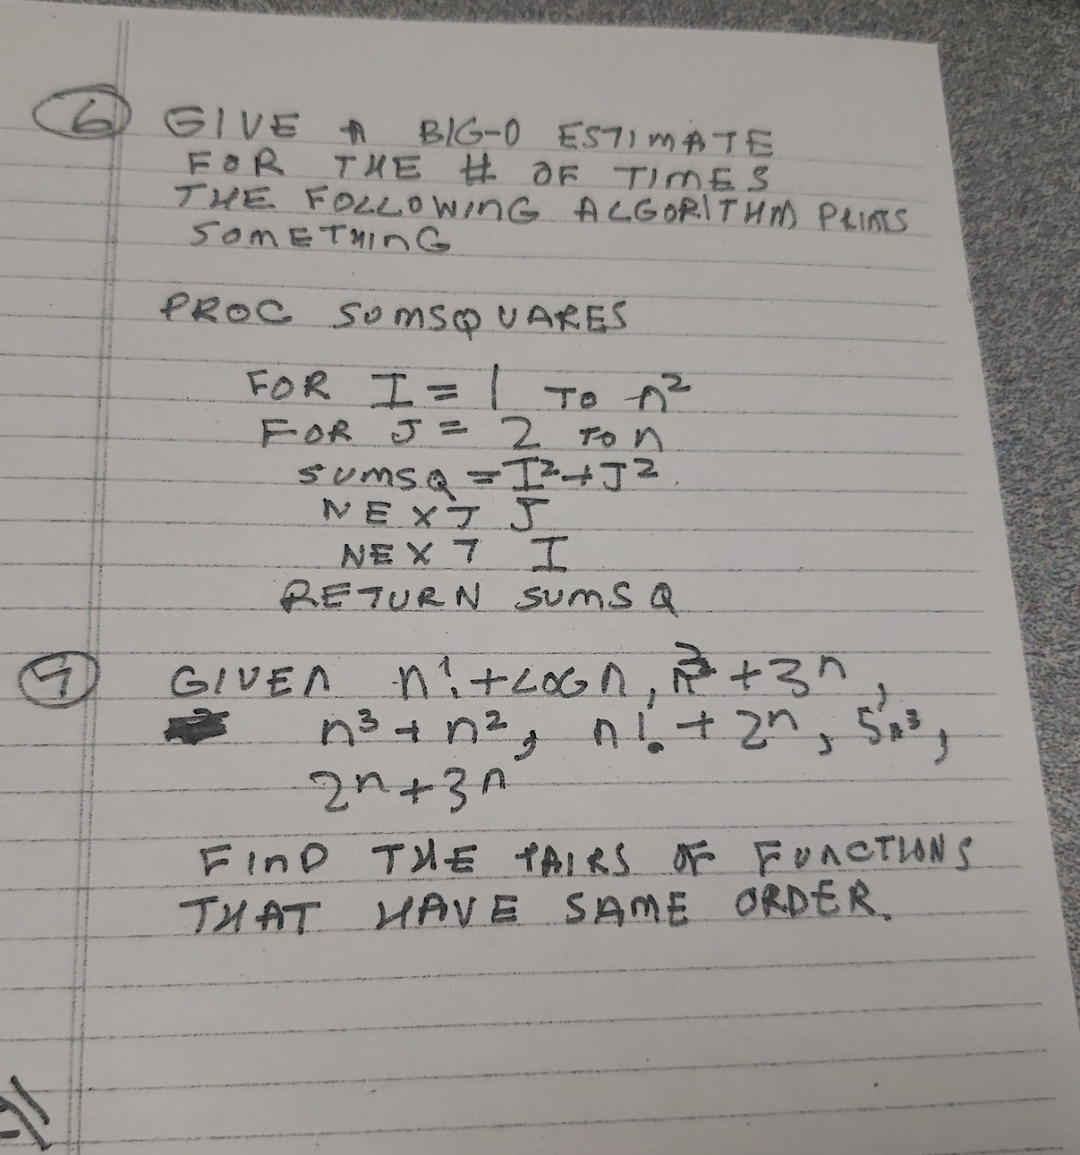 6 GIVE A BIG-O ESTIMATE
FOR THE # OF TIMES
THE FOLLOWING ALGORITHM PRINTS
SOMETHING
PROC SUMSQUARES
FOR I = 1 TO n²
FOR J = 2 TO n
SUMSQ = I²+J²
NEXT J
NEXT I
RETURN SUMSQ
7 GIVEN n!+LOG n, +3n,
n³+n², n!+2n, 5n³,
2n+3n
FIND THE PAIRS OF FUNCTIONS
THAT HAVE SAME ORDER.